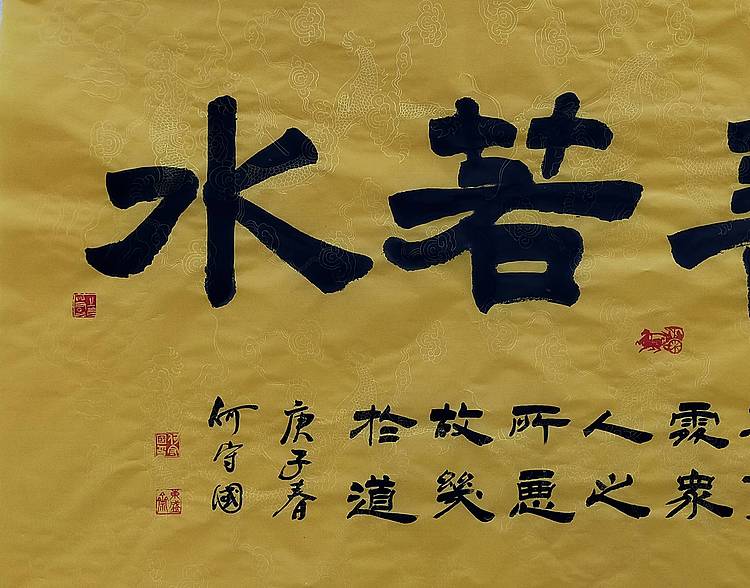 若水
處衆
人之
所惡
故幾
於道
庚子春
何守國